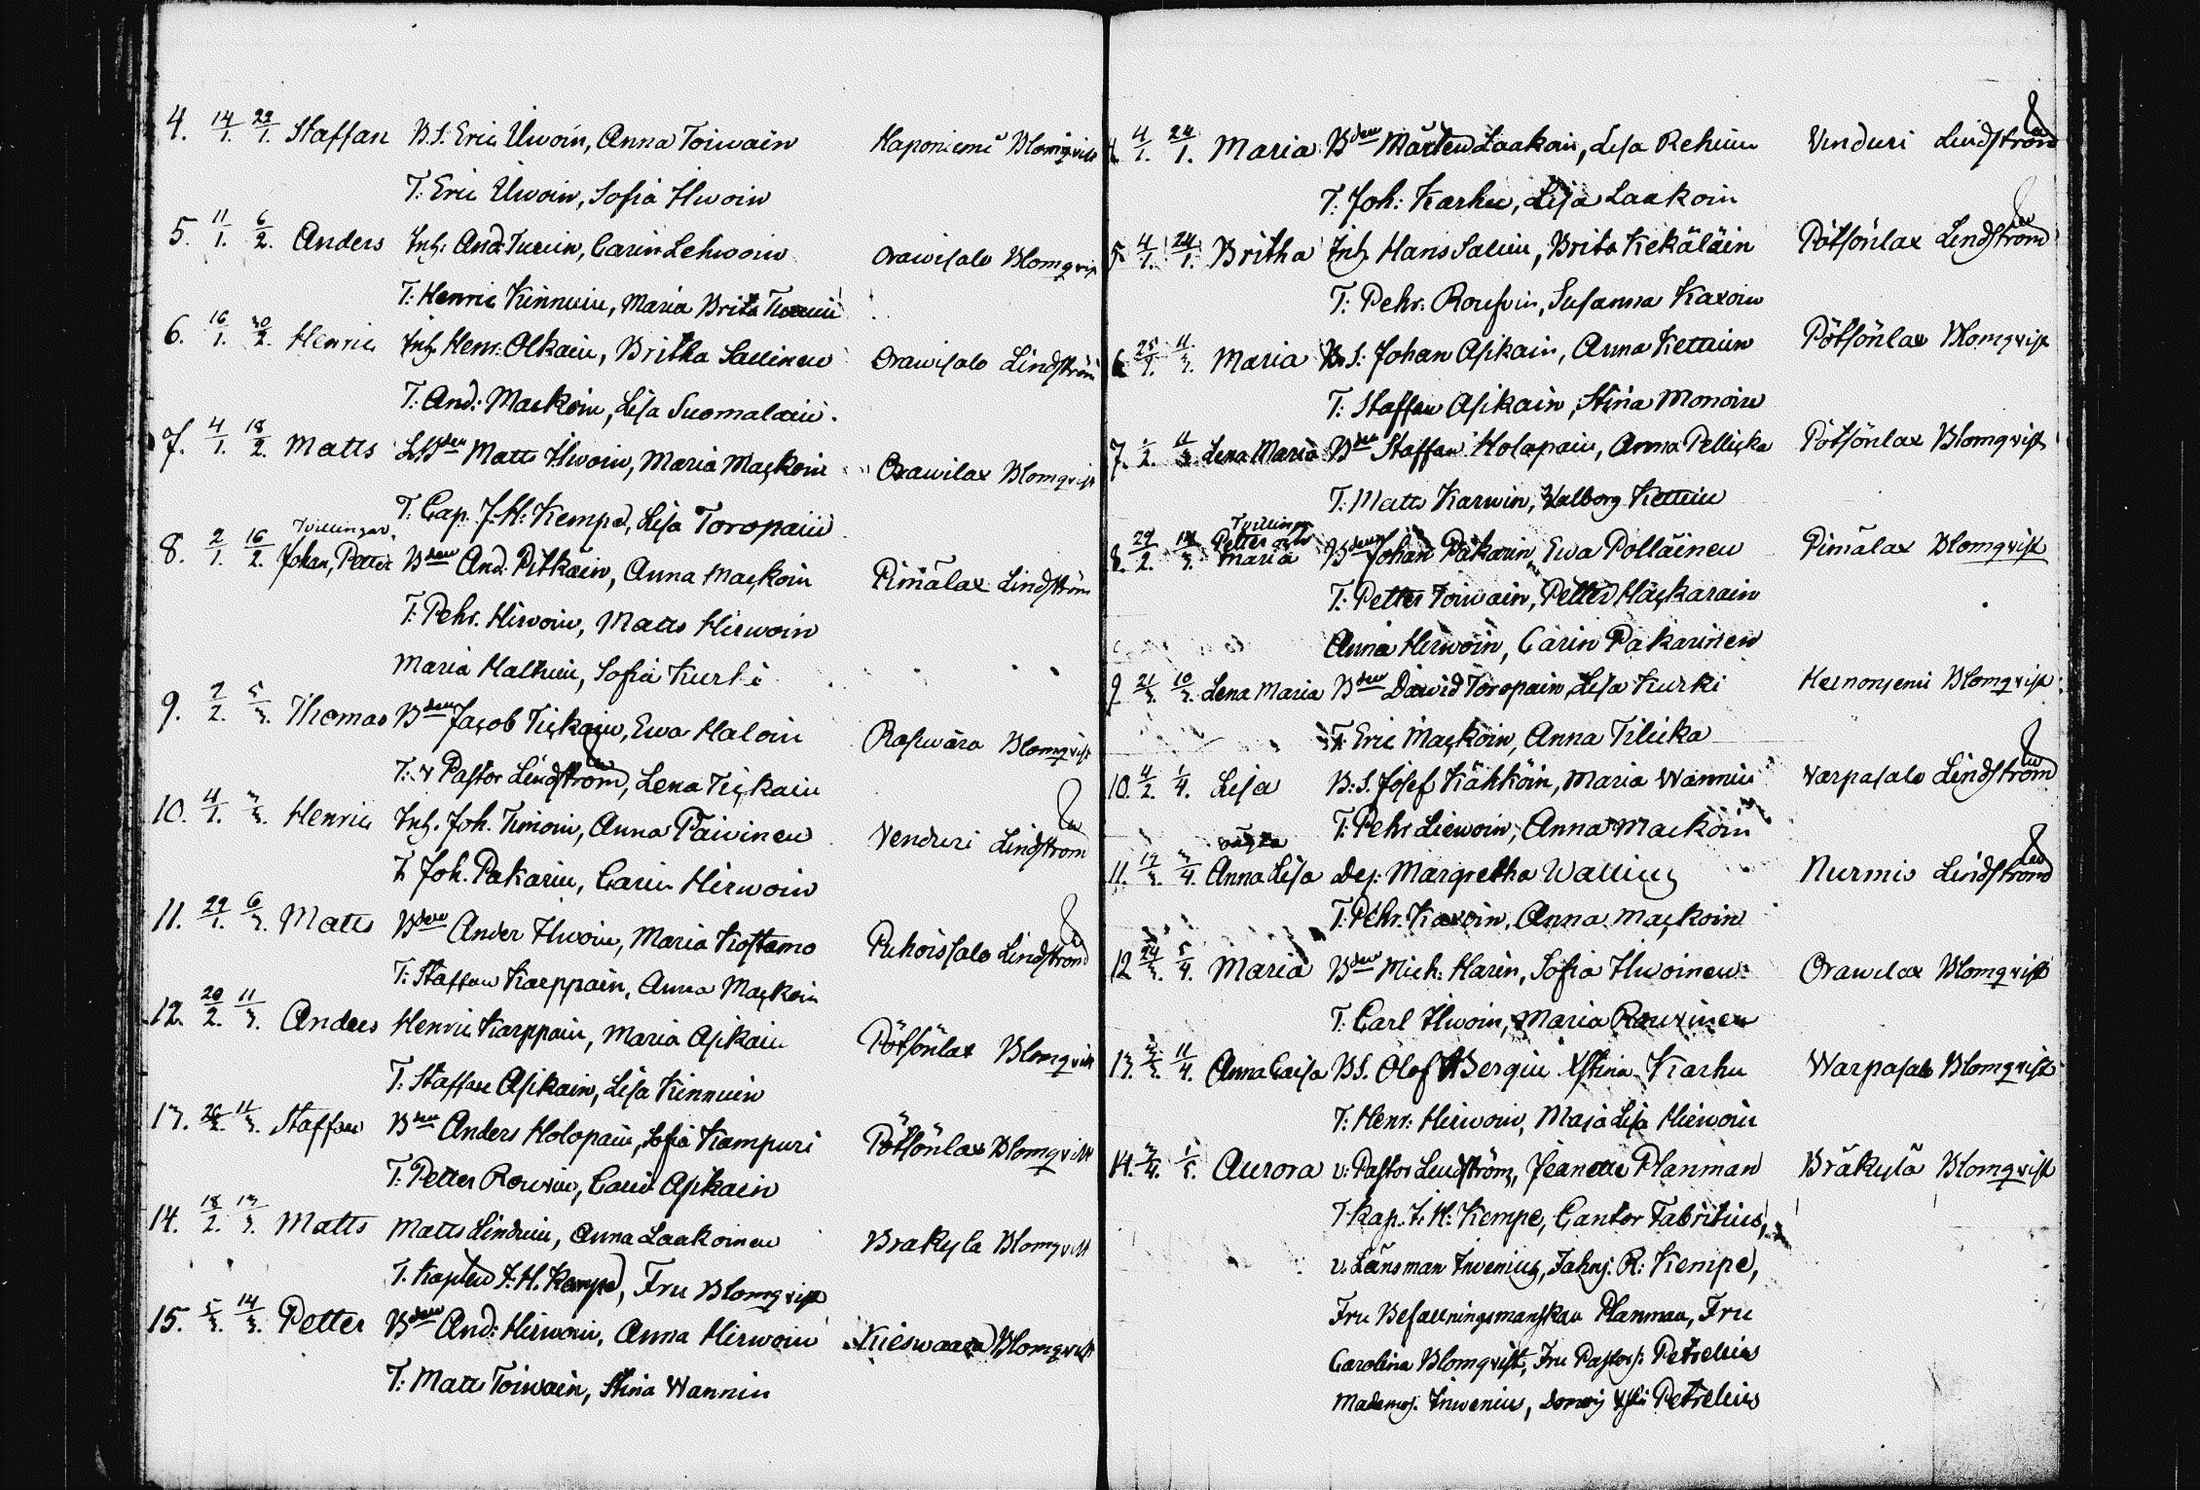 4. 14/1. 22/1. Staffan B.S. Eric Ihvoin, Anna Toivain Haponiemi Blomqvist
T: Eric Ihvoin, Sofia Ihvoin
5. 11/1. 6/2. Anders Inh. And. Turuin, Carin Lehvoin Oravisalo Blomqvist
T: Henric Kinnuin, Maria Brita
6. 16/1. 2. Henric Inh. Henr. Olkain, Britha Sallinen Oravisalo Lindström
T: And: Mackoin, Lisa Suomalain.
7. 4/1. 18/2. Matts Matts Ihvoin, Maria Mackoin Oravilax Blomqvist
T. Cap. J. H: Kempe, Lisa Toropain
Tvillingar,
8. 2/1. 16/2. Johan, Petter Bden And. Pitkäin, Anna Mackoin Pimälax Lindström
T: Pehr. Hirvoin, Matts Hirvoin
Maria Halhuin, Sofia Kurki
9. 2/2. 5/3. Thomas Bden Jacob Tickain, Eva Haloin Rasivara Blomqvist
T: v Pastor Lindström, Lena Tickain
10. 4/1. 3/3. Henric Inh. Joh. Timoin, Anna Päivinen Venduri Lindström
T. Joh. Pakarin, Carin Hirvoin
11. 29/1. 6/3. Matts Bden Ander Ihvoin, Maria Kostamo Puhoissalo Lindström
T: Staffan Karppain, Anna Mackoin
12. 20/2. 11/3. Anders Henric Karppain, Maria Asikain Pötsönlax Blomqvist
T: Staffan Asikain, Lisa Kinnuin
13. 26/2. 11/3. Staffan Bden Anders Holopain, Sofia Kampuri Pötsönlax Blomqvist
T: Petter Rouvin, Carin Asikain
14. 18/2. 13/3. Matts Matts Linduin, Anna Laakoinen Bräkylä Blomqvist
T. Kapten J. H. Kempe, Fru Blomqvist
15. 5/3. 14/3. Petter Bden And: Hirvoin, Anna Hirvoin Kieswaara Blomqvist
T: Matts Toivain, Stina Vannin
4. 4/1. 24/1. Maria Bden Mårten Laakoin, Lisa Rehuin Venduri Lindström
T. Joh: Karhu, Lisa Laakoin
5 4/1. 24/1. Britha Inh. Hans Saluin, Brita Kekäläin Pötsönlax Lindström
T: Pehr. Susanna Kaxoin
6 25/1. 11/3. Maria B.S: Johan Asikain, Anna Kettuin Pötsönlax Blomqvist
T: Staffan Asikain, Stina Monoin
7. 2. 11/3. Lena Maria Bden Staffan Holopain, Anna Pellicka Pötsönlax Blomqvist
T: Matts Karvin, Valborg Kettuin
Tvillingar
8. 29/2. 3. Petter och Maria Bden Johan Pakarin, Ewa Polläinen Pimälax Blomqvist
T: Petter Toivain, Petter Häckarain
Anna Hirvoin, Carin Pakarinen
9. 21/2. 10/3. Lena Maria Bden David Toropain, Lisa Kurki Hernonjemi Blomqvist
T. Eric Mackoin, Anna Tilicka
10. 4/2. 1/4. Lisa B.S. Josef Kähköin, Maria Vannin Varpasalo Lindström
T: Pehr Liewoin, Anna Mackoin
oägta
11. 12/3. 3/4. Anna Lisa Dej: Margretha Wallius Nurmis Lindström
T. Pehr. Kaxoin, Anna Mackoin
12 24/3. 5/4. Maria Bden Mich: Harin, Sofia Ihvoinen Oravilax Blomqvist
T: Carl Ihvoin, Maria Rouvinen
13. 3. 11/4. Anna Caisa BS. Olof Bergin Xstina Karhu Warpasalo Blomqvist
T: Henr: Hirvoin, Maja Lisa Hirvoin
14. 3/4. 1/5. Aurora v: Pastor Lindström, Jeanette Planman Bräkylä Blomqvist
T. Kap. J. H: Kempe, Cantor Fabritius,
v. Länsman Inwenius, Fahnj. R: Kempe,
Fru Befallningsmanskan Planman, Fru
Carolina Blomqvist, Fru Pastorsk Petrelius
Mademoj. Inwenius, Petrelius